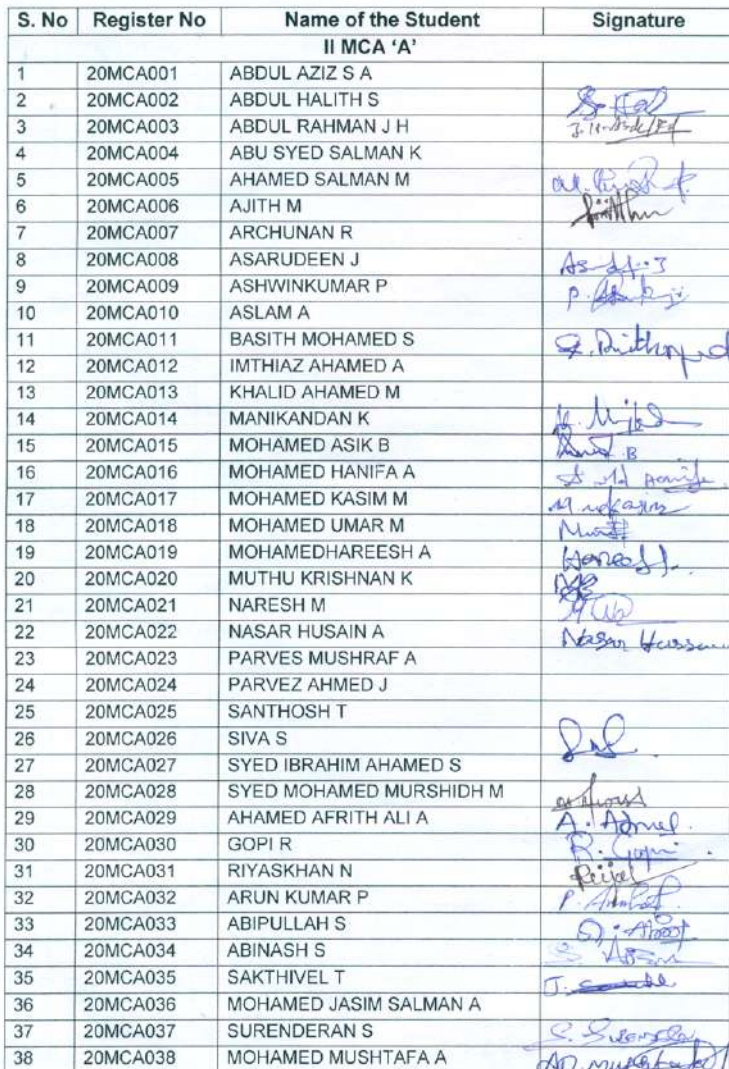 S. No Register No Name of the Student Signature
II MCA ‘A’
1 20MCA001 ABDUL AZIZ S A
2 20MCA002 ABDUL HALITH S
3 20MCA003 ABDUL RAHMAN J H
4 20MCA004 ABU SYED SALMAN K
5 20MCA005 AHAMED SALMAN M
6 20MCA006 AJITH M
7 20MCA007 ARCHUNAN R
8 20MCA008 ASARUDEEN J
9 20MCA009 ASHWINKUMAR P
10 20MCA010 ASLAM A
11 20MCA011 BASITH MOHAMED S
12 20MCA012 IMTHIAZ AHAMED A
13 20MCA013 KHALID AHAMED M
14 20MCA014 MANIKANDAN K
15 20MCA015 MOHAMED ASIK B
16 20MCA016 MOHAMED HANIFA A
17 20MCA017 MOHAMED KASIM M
18 20MCA018 MOHAMED UMAR M
19 20MCA019 MOHAMEDHAREESH A
20 20MCA020 MUTHU KRISHNAN K
21 20MCA021 NARESH M
22 20MCA022 NASAR HUSAIN A Nasar
23 20MCA023 PARVES MUSHRAF A
24 20MCA024 PARVEZ AHMED J
25 20MCA025 SANTHOSH T
26 20MCA026 SIVA S
27 20MCA027 SYED IBRAHIM AHAMED S
28 20MCA028 SYED MOHAMED MURSHIDH M
29 20MCA029 AHAMED AFRITH ALI A
30 20MCA030 GOPI R R. Gopi
31 20MCA031 RIYASKHAN N
32 20MCA032 ARUN KUMAR P
33 20MCA033 ABIPULLAH S
34 20MCA034 ABINASH S
35 20MCA035 SAKTHIVEL T
36 20MCA036 MOHAMED JASIM SALMAN A
37 20MCA037 SURENDERAN S
38 20MCA038 MOHAMED MUSHTAFA A